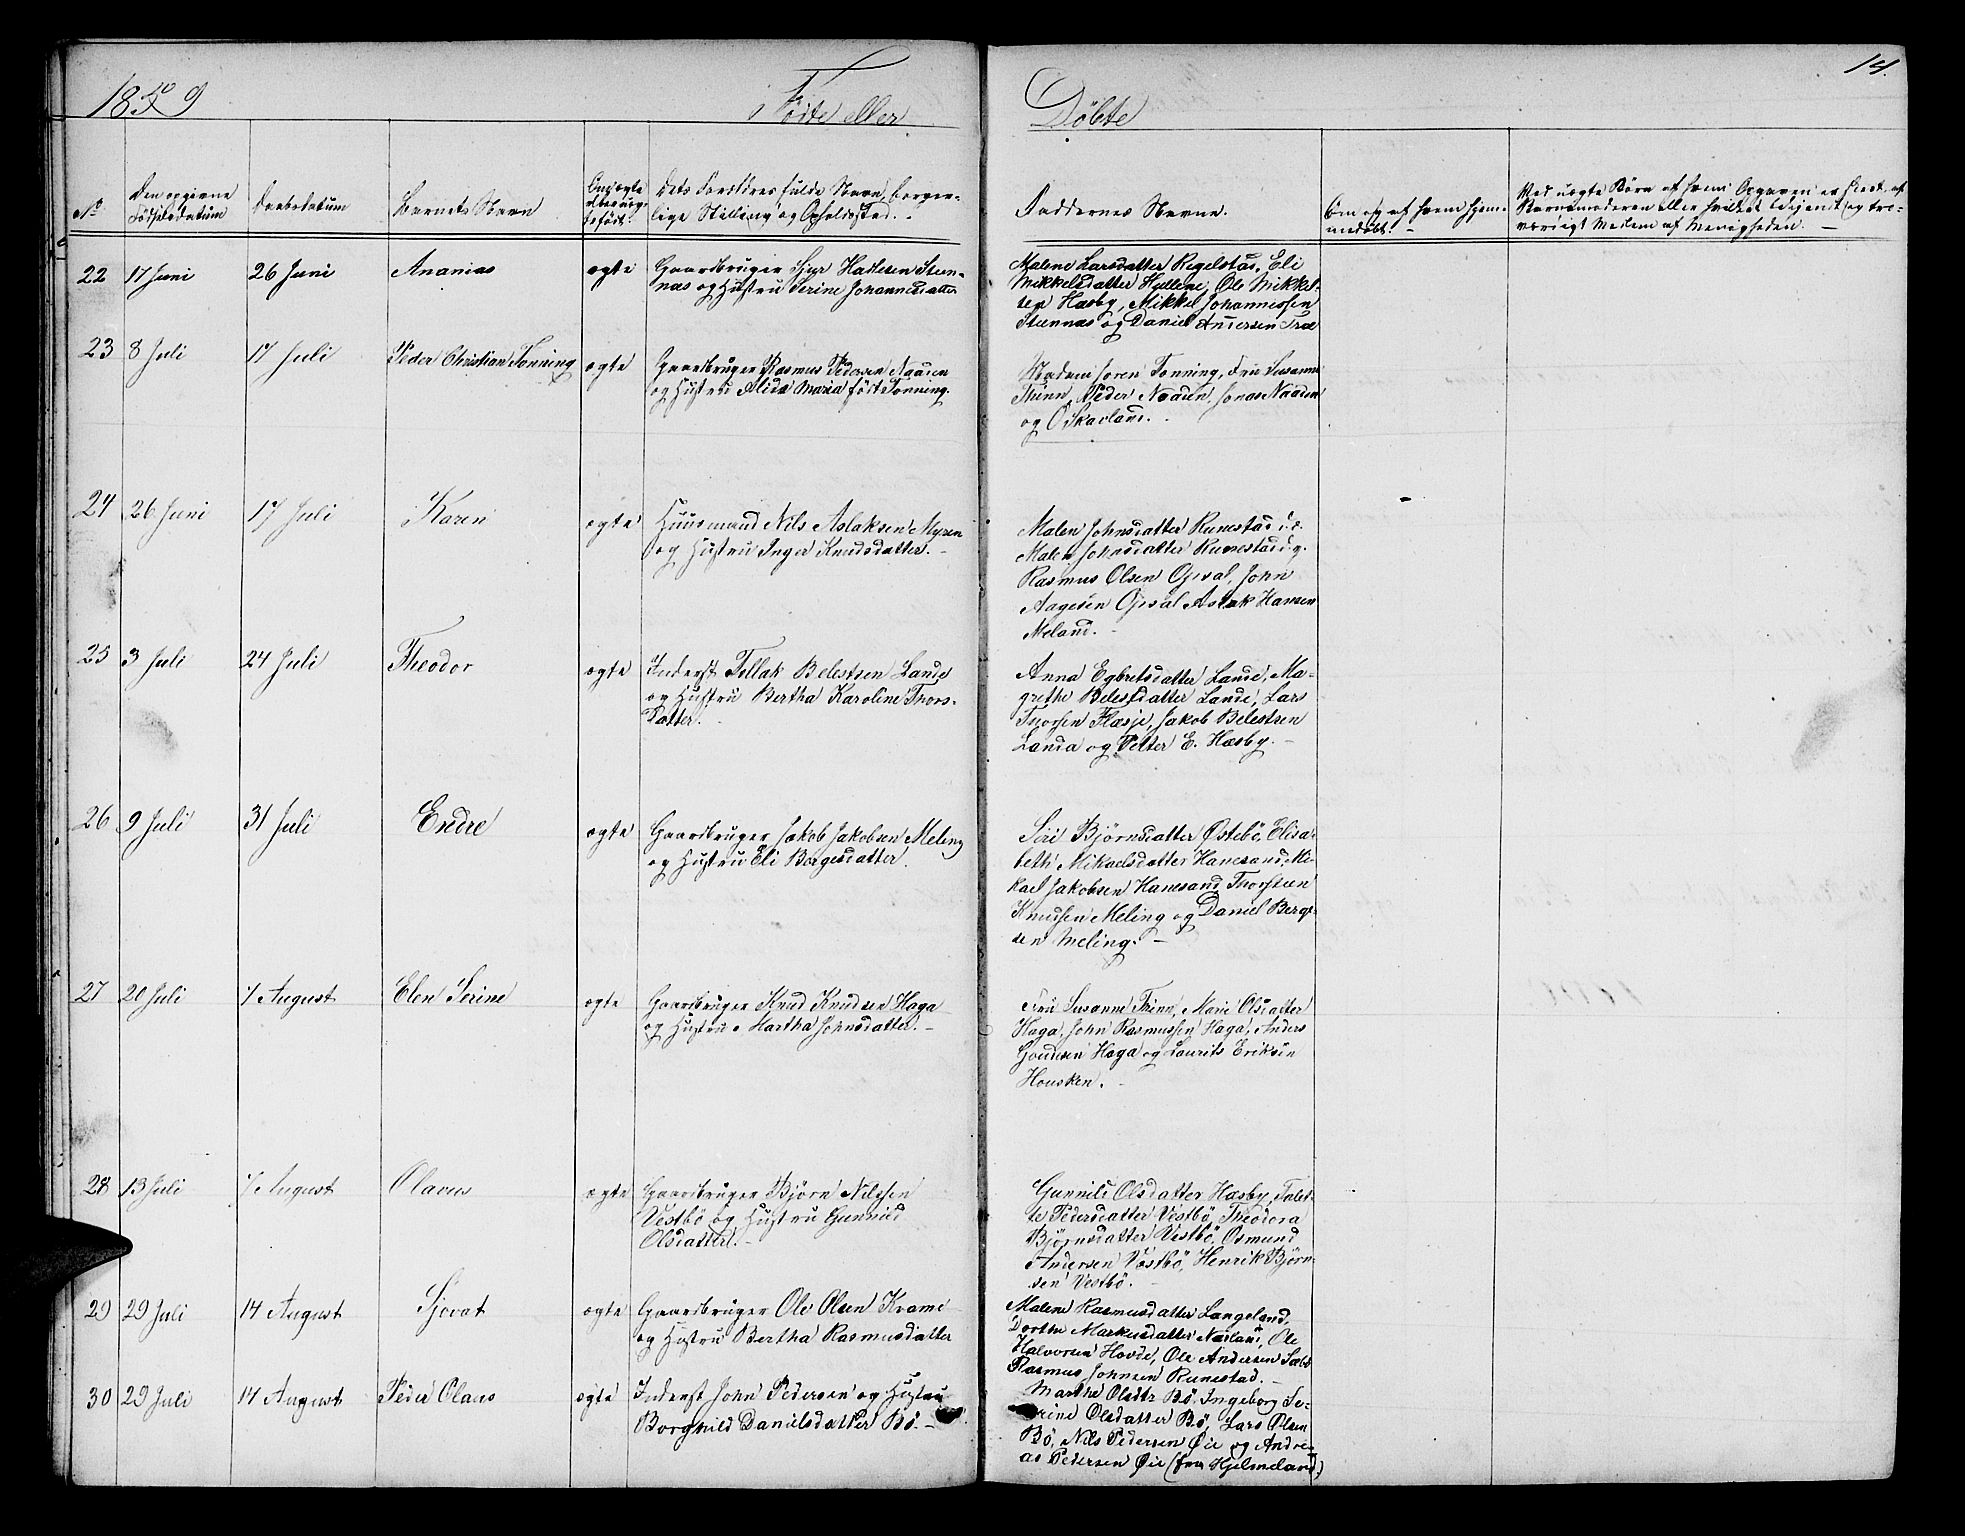 1859 Fødte eller Døbte 14.
No. Den opgivne Daabsdatum Barnets Navn Om ægte Dets Forældres fulde Navn, borger-
Fødselsdatum eller uægte lige Stilling og Opholdsted.
født.
Faddernes Navne. Om og af hvem hjem-
medøbt.
Ved uægte Børn af hvem Opgaven er skeet, af
Barnemoderen eller hvilket bekjendt og tro-
værdigt Medlem af Menigheden.
22 17 Juni 26 Juni Ananias ægte Gaardbruger Sjur Hadlesen Steen-
næs og Hustru Serine Johannesdatter
Malene Larsdatter Regelstad, Eli
Mikkelsdatter Hellene, Ole Mikkel-
sen Hæsby, Mikkel Johannessen
Steennæs og Daniel Andersen
23 8 Juli 17 Juli Peder Christian Tonning ægte Gaardbruger Rasmus Pedersen Naaden
og Hustru Alida Maria født Tonning.
Madam Soren Tonning, Fru Susanne
Thinn, Peder Naaden, Jonas Naaden
og O Skavland.
24 26 Juni 17 Juli Karen ægte Huusmand Nils Aslaksen Myren
og Hustru Inger Knudsdatter.
Malen Johnsdatter Runestad d. æ.
Malen Johnsdatter Runestad d. y.
Rasmus Olsen Opsal, John
Aagesen Opsal Aslak Hansen
Meland.
25 3 Juli 24 Juli Theodor ægte Inderst Tollak Belestsen Lande
og Hustru Bertha Karoline Thors-
datter.
Anna Egbretsdatter Lande, Ma-
grethe Belestdatter Lande, Lars
Thorsen Flæsje, Jakob Belestsen
Landa og Petter E. Hæsby.
26 9 Juli 31 Juli Endre ægte Gaardbruger Jakob Jakobsen Meling
og Hustru Eli Borgesdatter.
Siri Bjørnsdatter Østebö, Elisa-
beth Mikaelsdatter Hanesand, Mi-
kael Jakobsen Hanesand Thorsteen
Knudsen Meling og Daniel Berge-
sen Meling.
27 20 Juli 7 August Elen Serine ægte Gaardbruger Knud Knudsen Haga
og Hustru Martha Johnsdatter.
Fru Susanne Thinn, Marie Olsdatter
Haga, John Rasmussen Haga, Anders
Haga og Laurits Eriksen
Housken.
28 13 Juli 7 August Olavus ægte Gaardbruger Bjørn Nilssen
Vestbö og Hustru Gunnild
Olsdatter.
Gunnild Olsdatter Hæsby, Talet-
te Pedersdatter Vestbö, Theodora
Bjørnsdatter Vestbö, Osmund
Andersen Vestbö, Henrik Bjørn-
sen Vestbö.
29 29 Juli 14 August Sjovat ægte Gaardbruger Ole Olsen Krame
og Hustru Bertha Rasmusdatter
Malene Rasmusdatter Langeland,
Dorthe Markusdatter Nærland, Ole
Halvorsen Hovde, Ole Andersen Sæbö
Rasmus Johnsen Runestad.
30 29 Juli 14 August Peder Olaus ægte Inderst John Pedersen og Hustru
Borghild Danielsdatter Bö.
Marthe Olsdtr Bö, Ingeborg Se-
rine Olsdatter Bö, Lars Olsen
Bö, Nils Pedersen Øie og Andre-
as Pedersen Øie (fra Hjelmeland)